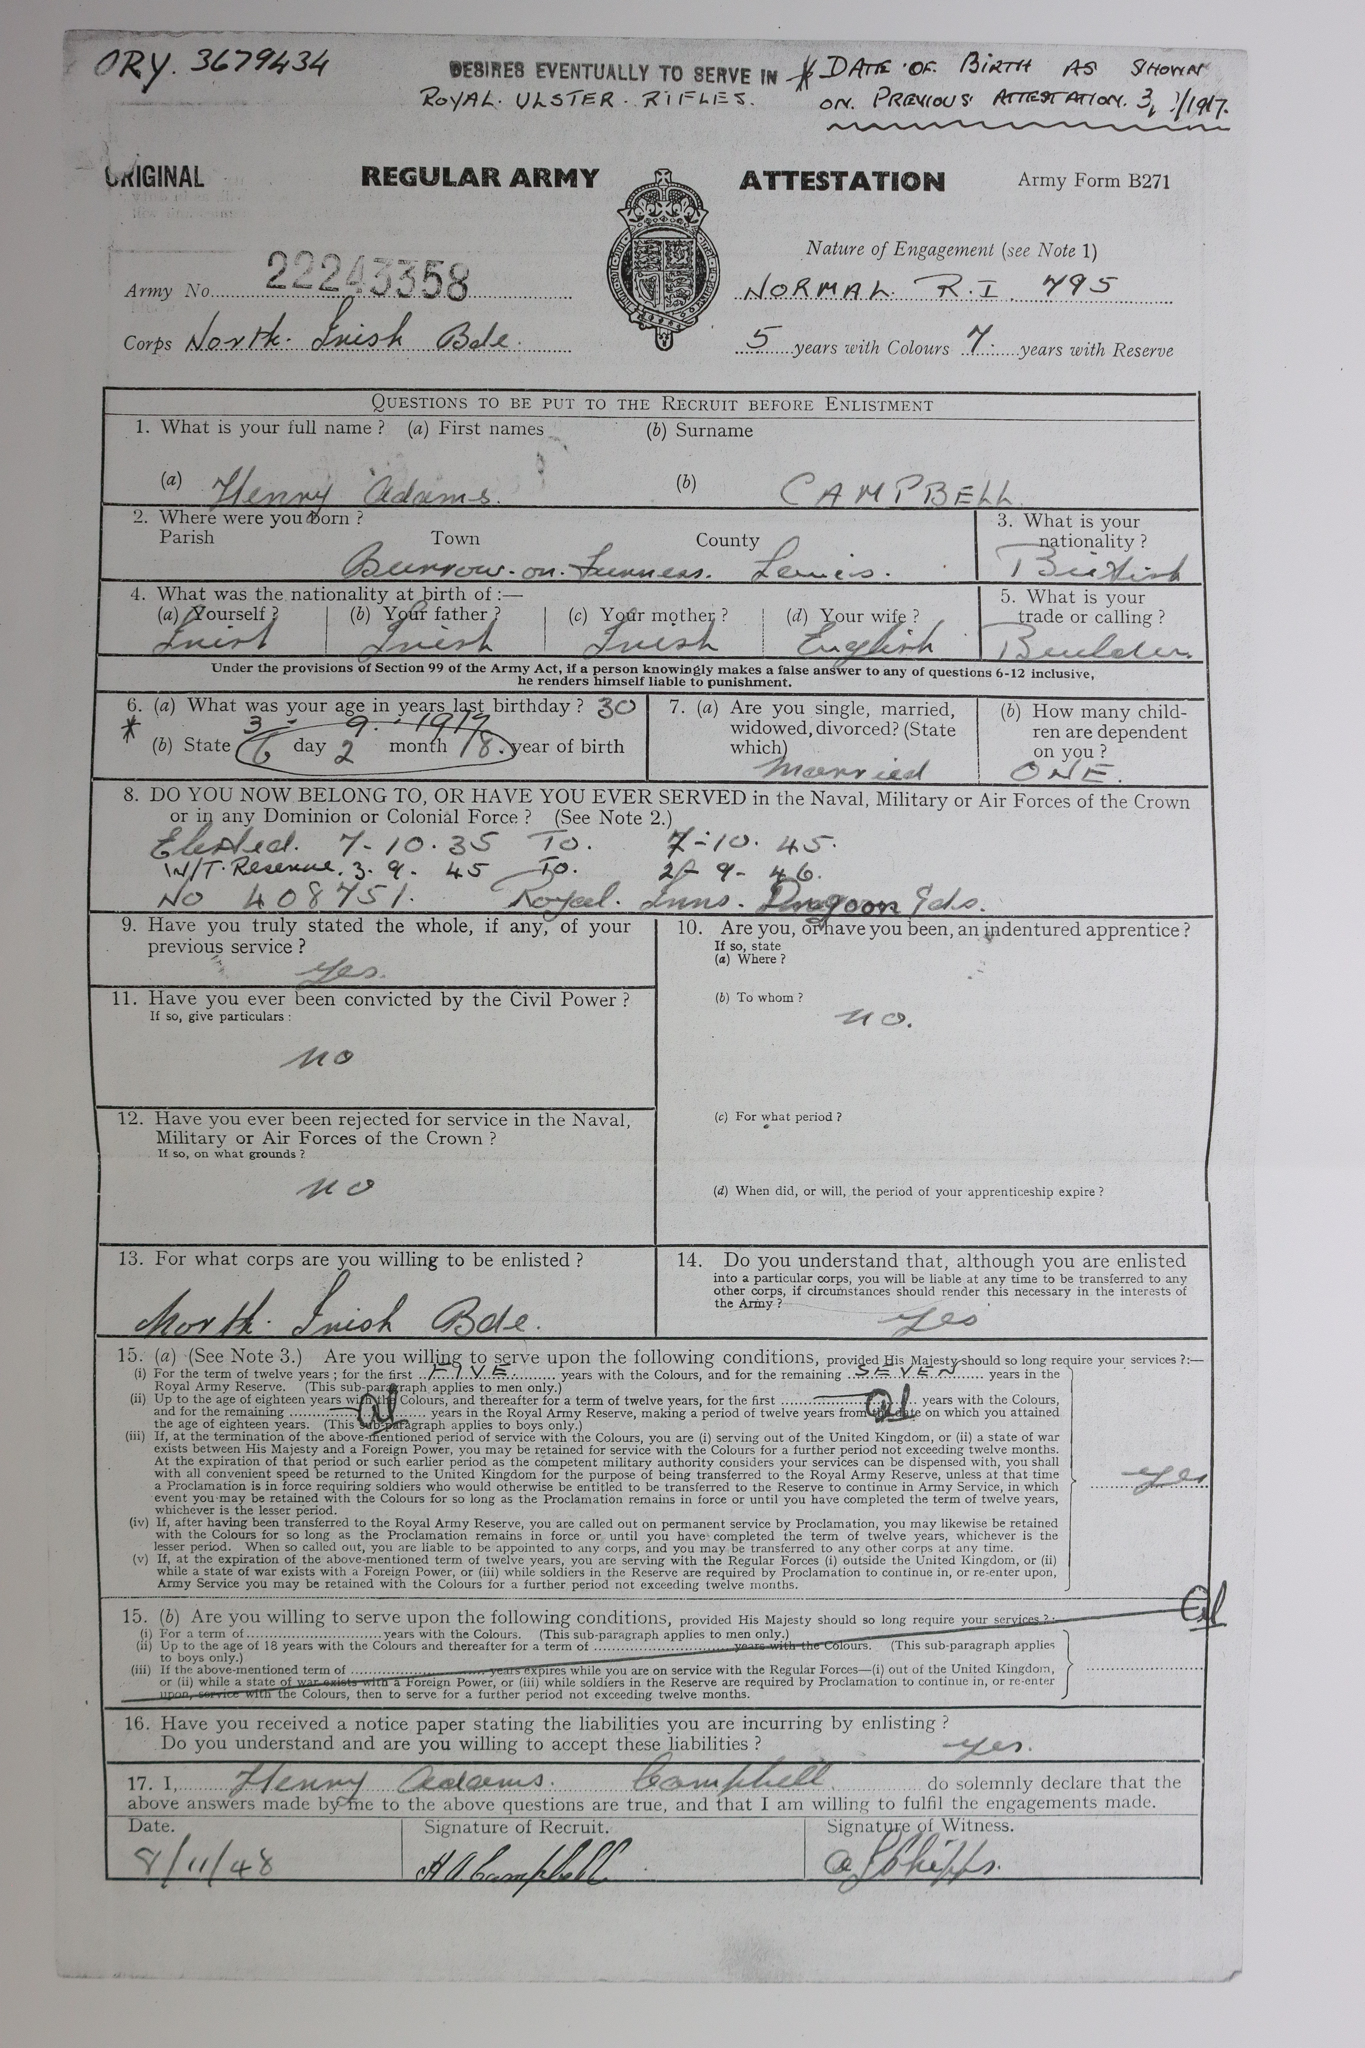 ORY. 3679434
DESIRES EVENTUALLY TO SERVE IN
ROYAL. ULSTER. RIFLES.
* DATE OF BIRTH AS SHOWN
ON PREVIOUS ATTESTATION. 3, /1917.
ORIGINAL REGULAR ARMY ATTESTATION Army Form B271
Nature of Engagement (see Note 1)
Army No. 22243358 NORMAL R.I. 795
Corps North. Irish Bde. 5 years with Colours 7 years with Reserve
QUESTIONS TO BE PUT TO THE RECRUIT BEFORE ENLISTMENT
1. What is your full name? (a) First names (b) Surname
(a) Henry Adams. (b) CAMPBELL
2. Where were you born?
Parish Town County
Burrow-on-Furness.
3. What is your
nationality?
British
4. What was the nationality at birth of:—
(a) Yourself? (b) Your father? (c) Your mother? (d) Your wife?
Irish Irish Irish English
5. What is your
trade or calling?
Builder.
Under the provisions of Section 99 of the Army Act, if a person knowingly makes a false answer to any of questions 6-12 inclusive,
he renders himself liable to punishment.
6. (a) What was your age in years last birthday? 30
* 3 - 9. - 1917
(b) State 6 day 2 month 18. year of birth
7. (a) Are you single, married,
widowed, divorced? (State
which)
Married
(b) How many child-
ren are dependent
on you?
ONE.
8. DO YOU NOW BELONG TO, OR HAVE YOU EVER SERVED in the Naval, Military or Air Forces of the Crown
or in any Dominion or Colonial Force? (See Note 2.)
7-10.35 To. 7-10.45.
W/T. Reserve. 3-9. 45 To. 2-9-46.
No 408751. Royal. Inns. Dragoon Gds.
9. Have you truly stated the whole, if any, of your
previous service?
Yes.
10. Are you, or have you been, an indentured apprentice?
If so, state
(a) Where?
(b) To whom?
no.
11. Have you ever been convicted by the Civil Power?
If so, give particulars:
no
12. Have you ever been rejected for service in the Naval,
Military or Air Forces of the Crown?
If so, on what grounds?
no
(c) For what period?
(d) When did, or will, the period of your apprenticeship expire?
13. For what corps are you willing to be enlisted?
North. Irish Bde.
14. Do you understand that, although you are enlisted
into a particular corps, you will be liable at any time to be transferred to any
other corps, if circumstances should render this necessary in the interests of
the Army?
Yes
15. (a) (See Note 3.) Are you willing to serve upon the following conditions, provided His Majesty should so long require your services?:—
(i) For the term of twelve years; for the first FIVE years with the Colours, and for the remaining SEVEN years in the
Royal Army Reserve. (This sub-paragraph applies to men only.)
(ii) Up to the age of eighteen years with the Colours, and thereafter for a term of twelve years, for the first years with the Colours,
and for the remaining years in the Royal Army Reserve, making a period of twelve years from the date on which you attained
the age of eighteen years. (This sub-paragraph applies to boys only.)
(iii) If, at the termination of the above-mentioned period of service with the Colours, you are (i) serving out of the United Kingdom, or (ii) a state of war
exists between His Majesty and a Foreign Power, you may be retained for service with the Colours for a further period not exceeding twelve months.
At the expiration of that period or such earlier period as the competent military authority considers your services can be dispensed with, you shall
with all convenient speed be returned to the United Kingdom for the purpose of being transferred to the Royal Army Reserve, unless at that time
a Proclamation is in force requiring soldiers who would otherwise be entitled to be transferred to the Reserve to continue in Army Service, in which
event you may be retained with the Colours for so long as the Proclamation remains in force or until you have completed the term of twelve years,
whichever is the lesser period.
yes
(iv) If, after having been transferred to the Royal Army Reserve, you are called out on permanent service by Proclamation, you may likewise be retained
with the Colours for so long as the Proclamation remains in force or until you have completed the term of twelve years, whichever is the
lesser period. When so called out, you are liable to be appointed to any corps, and you may be transferred to any other corps at any time.
(v) If, at the expiration of the above-mentioned term of twelve years, you are serving with the Regular Forces (i) outside the United Kingdom, or (ii)
while a state of war exists with a Foreign Power, or (iii) while soldiers in the Reserve are required by Proclamation to continue in, or re-enter upon,
Army Service you may be retained with the Colours for a further period not exceeding twelve months.
15. (b) Are you willing to serve upon the following conditions, provided His Majesty should so long require your services?:
(i) For a term of years with the Colours. (This sub-paragraph applies to men only.)
(ii) Up to the age of 18 years with the Colours and thereafter for a term of years with the Colours. (This sub-paragraph applies
to boys only.)
(iii) If the above-mentioned term of years expires while you are on service with the Regular Forces—(i) out of the United Kingdom,
or (ii) while a state of war exists with a Foreign Power, or (iii) while soldiers in the Reserve are required by Proclamation to continue in, or re-enter
upon, service with the Colours, then to serve for a further period not exceeding twelve months.
16. Have you received a notice paper stating the liabilities you are incurring by enlisting?
Do you understand and are you willing to accept these liabilities? yes.
17. I, Henry Adams. Campbell. do solemnly declare that the
above answers made by me to the above questions are true, and that I am willing to fulfil the engagements made.
Date. Signature of Recruit. Signature of Witness.
8/11/48 H A Campbell